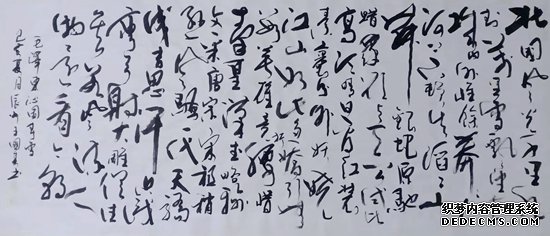 北国风光千里冰
封万里雪飘望长
城内外惟余莽莽
大河上下顿失滔滔山
舞银蛇原驰
蜡象欲与天公试比
高须晴日看红装
素裹分外妖娆
江山如此多娇引无
数英雄竞折腰惜
秦皇汉武略输
文采唐宗宋祖稍
逊风骚一代天骄
成吉思汗只识
弯弓射大雕俱往
矣数风流
人物还看今朝
毛泽东沁园春雪
己亥夏月
织梦内容管理系统
DEDECMS.COM